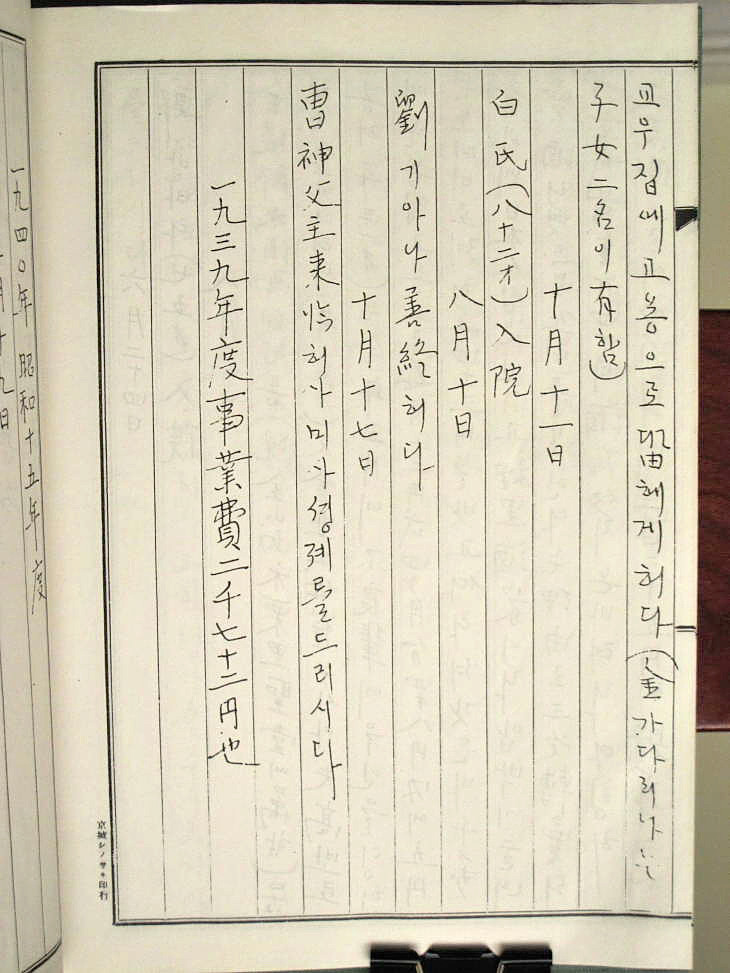 교우집에 고용으로 留헤게허다 (金가다리나는
子女二名이有함)
十月十一日
白氏(八十二才)入院
八月十日
劉기아나善終허다
十月十七日
曺神父主来臨허사미사셩례를드리시다
一九三九年度事業費二千七十二円也
京城シノサキ印行
一九四〇年 昭和十五年度
月十九日